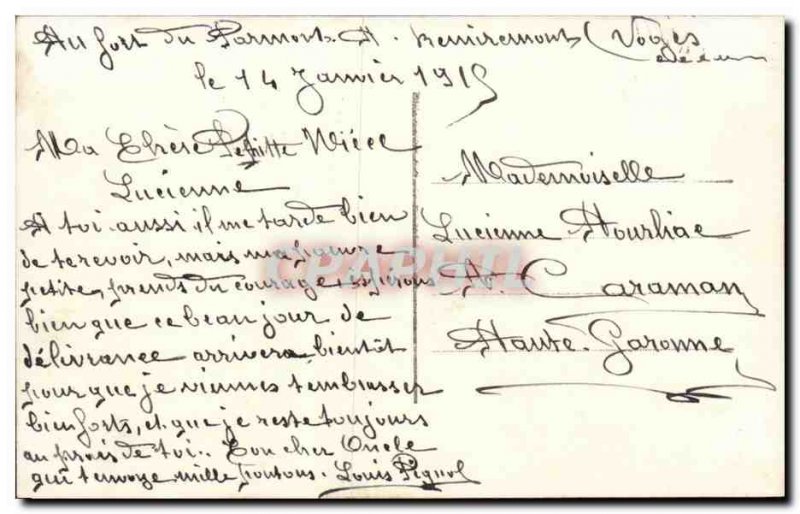 Au fort du Parmont. A. Remiremont (Vosges
le 14 Janvier 1915
Ma Chère Petitte Nièce
Lucienne
A toi aussi il me tarde bien
de te revoir, mais ma pauvre
petite, prends du courage, espérons
bien que ce beau jour de
délivrance arrivera bientôt
pour que je viennes t'embrasser
bien forts, et que je reste toujours
au près de toi.. Ton cher Oncle
qui t'envoye mille poutous. Louis Pignol
Mademoiselle
Lucienne Hourliac
A. Caraman
Haute-Garonne
CPAPHIL